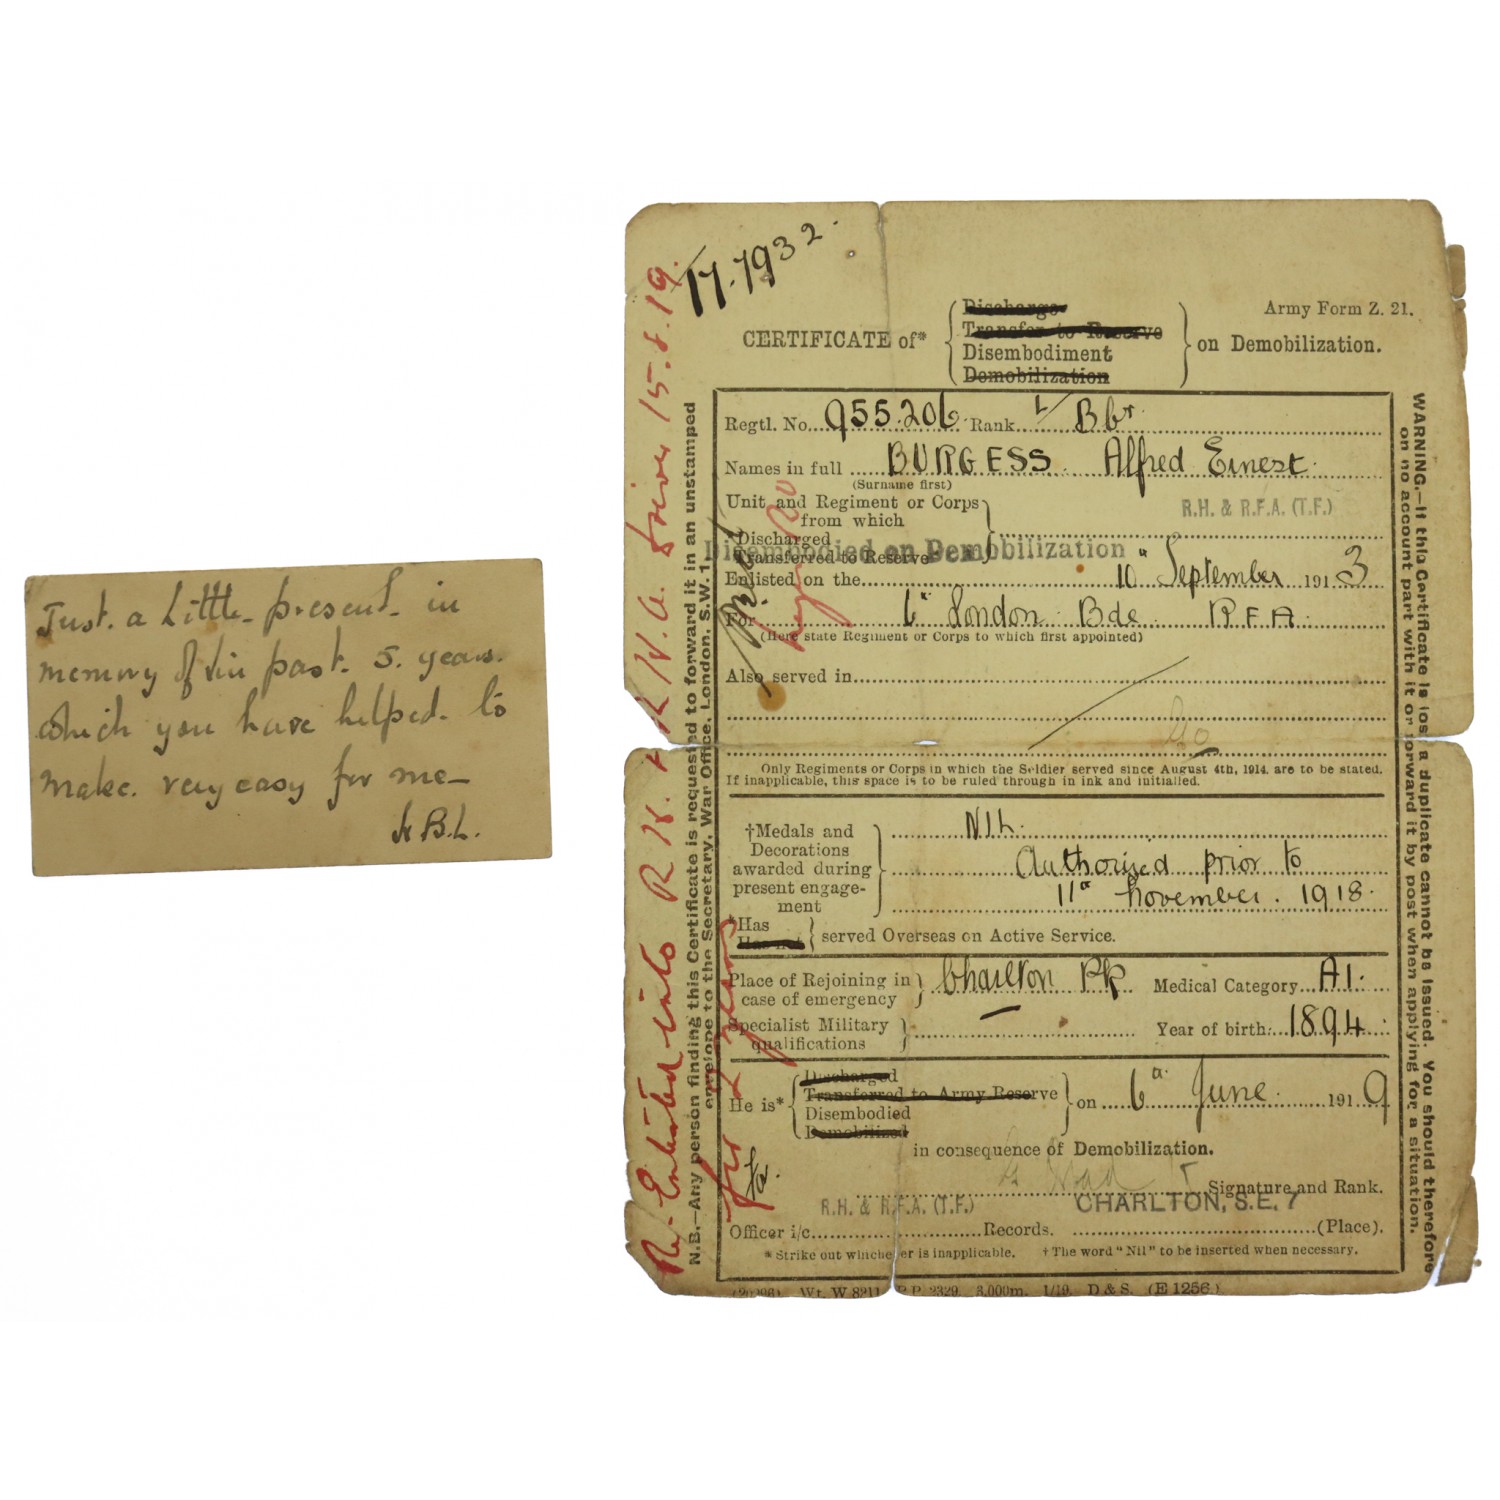 Just. a Little present. in
memory of the past. 5. years.
which you have helped. to
make. very easy for me—
B.L.
17.1932.
Army Form Z. 21.
CERTIFICATE of*
Discharge
Transfer to Reserve
Disembodiment
Demobilization
on Demobilization.
Regtl. No. 955206 Rank L/Bbr.
Names in full BURGESS. Alfred Ernest.
(Surname first)
Unit and Regiment or Corps
from which
Discharged
Transferred to Reserve
R.H. & R.F.A. (T.F.)
Disembodied on Demobilization
Enlisted on the 10th September 1913
For 6th London Bde RFA
(Here state Regiment or Corps to which first appointed)
Also served in
Only Regiments or Corps in which the Soldier served since August 4th, 1914. are to be stated.
If inapplicable, this space is to be ruled through in ink and initialled.
†Medals and
Decorations
awarded during
present engage-
ment
NIL.
Authorised prior to
11th November. 1918.
*Has
Has not
served Overseas on Active Service.
Place of Rejoining in
case of emergency
Charlton Pk
Medical Category A1.
Specialist Military
qualifications
—
Year of birth: 1894.
He is*
Discharged
Transferred to Army Reserve
Disembodied
Demobilized
on 6th June. 1919
in consequence of Demobilization.
Signature and Rank.
R.H. & R.F.A. (T.F.)
CHARLTON, S.E. 7
Officer i/c Records. (Place).
* Strike out whichever is inapplicable. † The word "Nil" to be inserted when necessary.
Wt. W 8211 P.P. 2329. 3,000m. 1/19. D & S. (E 1256.)
N.B.—Any person finding this Certificate is requested to forward it in an unstamped
envelope to the Secretary, War Office, London, S.W. 1.
WARNING.—If this Certificate is lost a duplicate cannot be issued. You should therefore
on no account part with it or forward it by post when applying for a situation.
Re-Enlisted into R.H. & R.H.A. Driver 15.8.19.
for 2 years